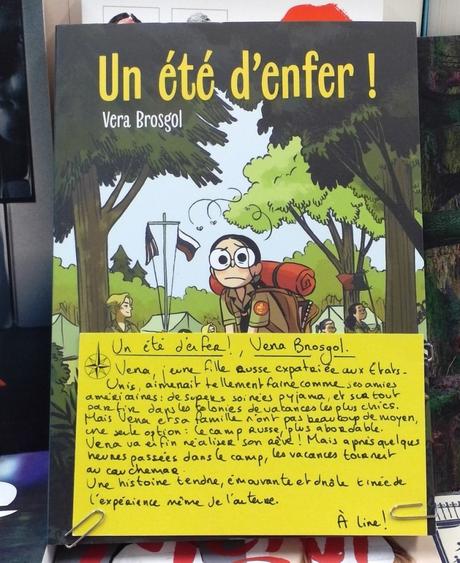 Un été d'enfer !
Vera Brosgol
Un été d'enfer!, Vera Brosgol.
Vera, jeune fille russe expatriée aux Etats-
Unis, aimerait tellement faire comme ses amies
américaines: de supers soirées pyjama, et surtout
partir dans les colonies de vacances les plus chics.
Mais Vera et sa famille n'ont pas beaucoup de moyen,
une seule option: le camp russe, plus abordable.
Vera va enfin réaliser son rêve! Mais après quelques
heures passées dans le camp, les vacances tournent
au cauchemar.
Une histoire tendre, émouvante et drôle tirée de
l'expérience même de l'auteure.
À lire!